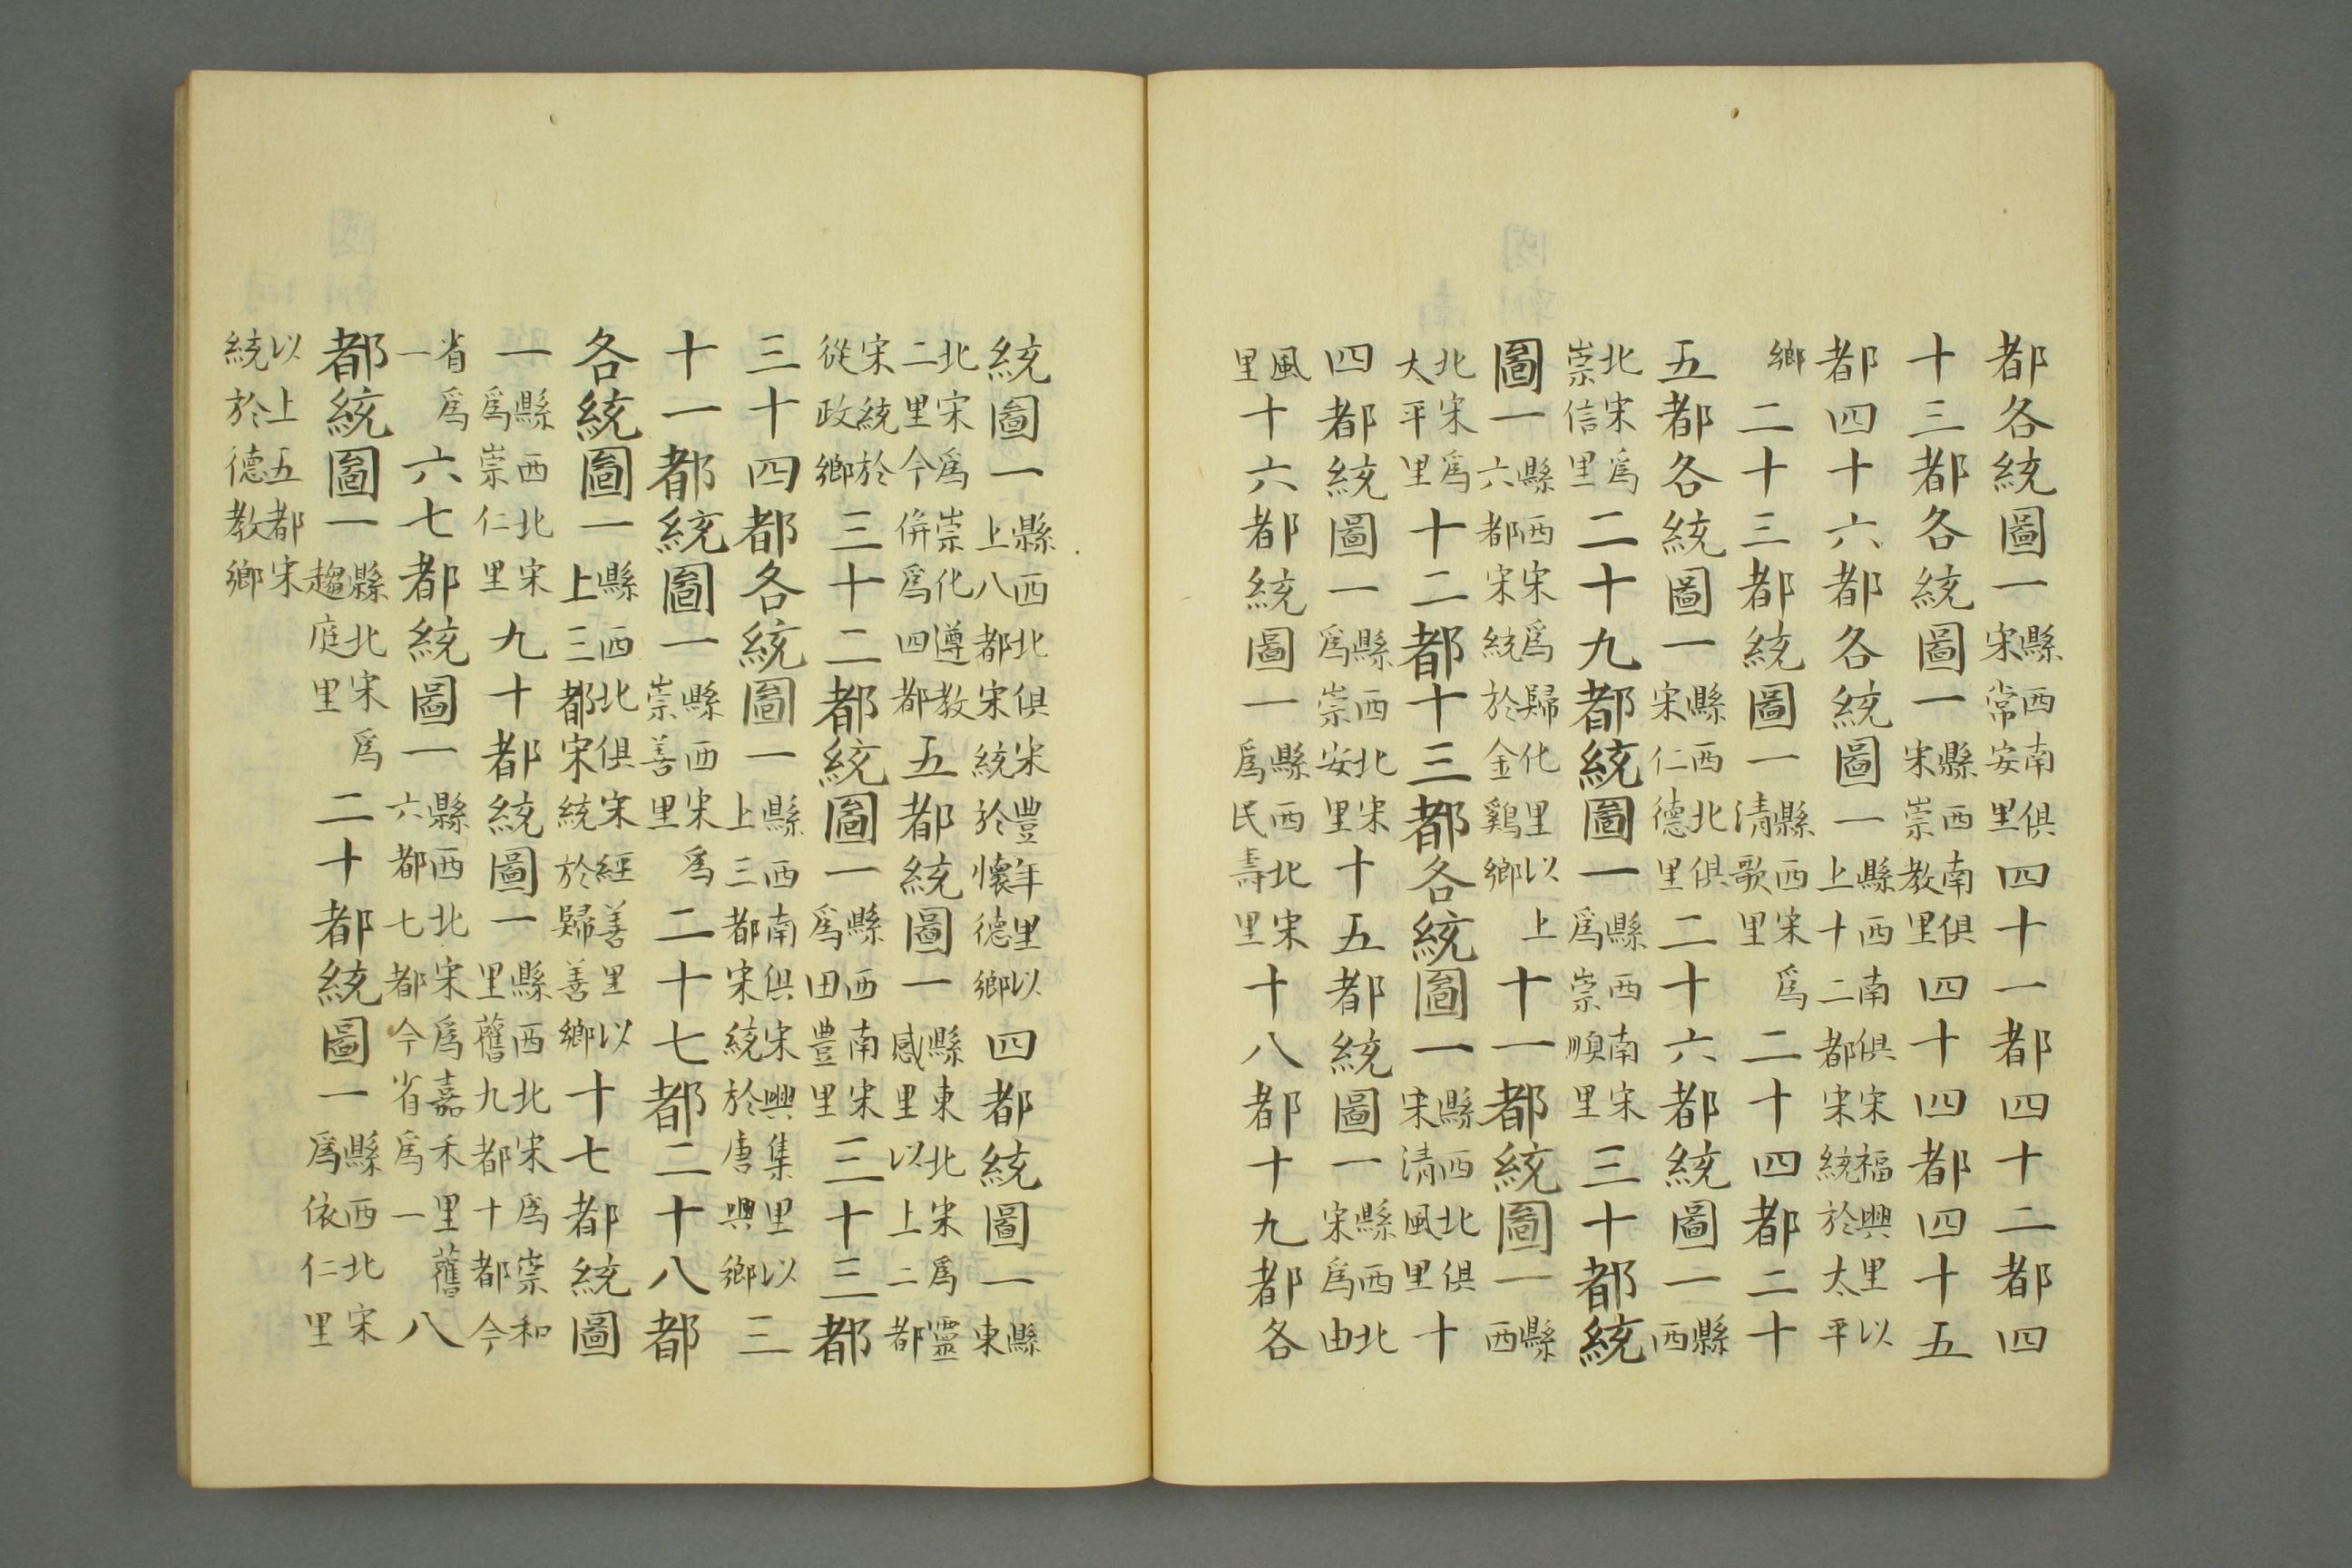 都各統圖一縣西南俱宋常安里四十一都四十二都四
十三都各統圖一縣西南俱宋崇教里四十四都四十五
都四十六都各統圖一縣西南俱宋福興里以上十二都宋統於太平
鄉二十三都統圖一縣西宋爲清歌里二十四都二十
五都各統圖一縣西北俱宋仁德里二十六都統圖一縣西
北宋爲崇信里二十九都統圖一縣西南宋爲崇順里三十都統
圖一縣西宋爲歸化里以上六都宋統於金雞鄉十一都統圖一縣西
北宋爲太平里十二都十三都各統圖一縣西北俱宋清風里十
四都統圖一縣西北宋爲崇安里十五都統圖一縣西北宋爲由
風里十六都統圖一縣西北宋爲民壽里十八都十九都各
統圖一縣西北俱宋豊年里以上八都宋統於懷德鄉四都統圖一縣東
北宋爲崇化遵教二里今併爲四都五都統圖一縣東北宋爲靈感里以上二都
宋統於從政鄉三十二都統圖一縣西南宋爲田豊里三十三都
三十四都各統圖一縣西南俱宋興集里以上三都宋統於唐興鄉三
十一都統圖一縣西宋爲崇善里二十七都二十八都
各統圖一縣西北俱宋經善里以上三都宋統於歸善鄉十七都統圖
一縣西北宋爲崇仁里九十都統圖一縣西北宋爲崇和里舊九都十都今
省爲一六七都統圖一縣西北宋爲嘉禾里舊六都七都今省爲一八
都統圖一縣北宋爲趨庭里二十都統圖一縣西北宋爲依仁里
以上五都宋統於德教鄉